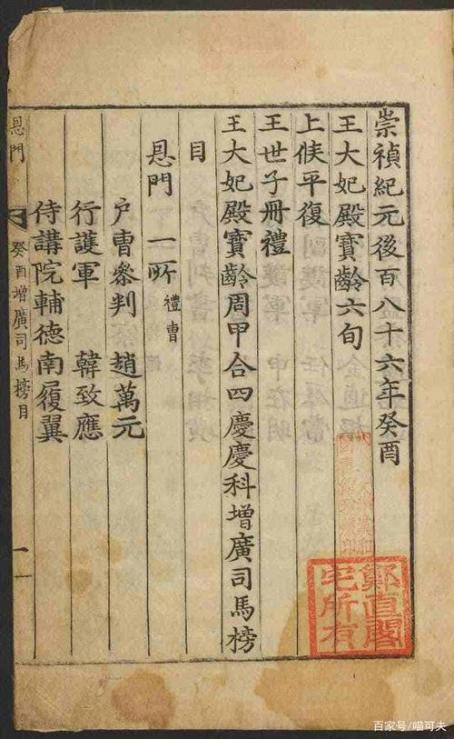 崇禎紀元後百八十六年癸酉
王大妃殿寶齡六旬
上候平復
王世子冊禮
王大妃殿寶齡周甲合四慶慶科增廣司馬榜
目
恩門 一所 禮曹
戶曹參判 趙萬元
行護軍 韓致應
侍講院輔德南履翼
恩門
癸酉增廣司馬榜目
一
鄭直閣
宅所有
百家号/喵可夫